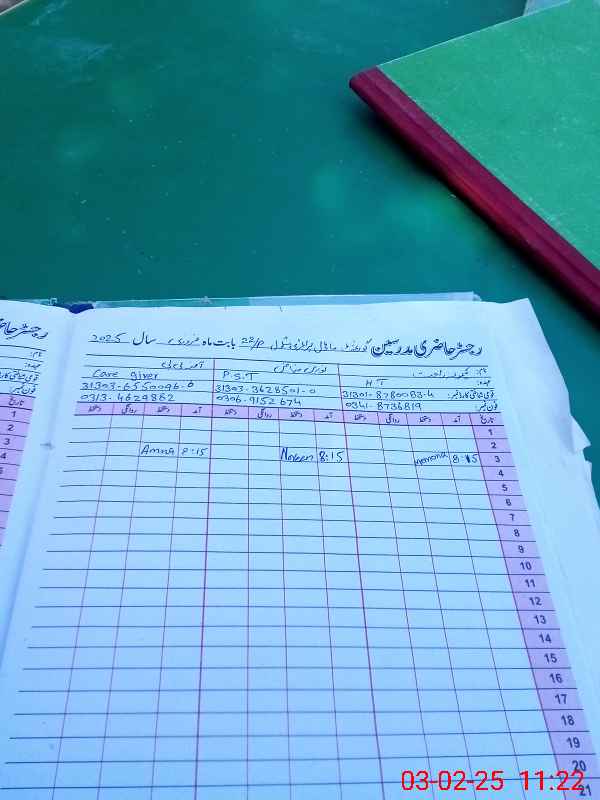 رجسٹر حاضری مدرسین گورنمنٹ ماڈل پرائمری سکول 22/P بابت ماہ فروری سال 2025
نام:
عہدہ: H T P.S.T Care giver
قومی شناختی کارڈ نمبر: 31301-8780083-4 31303-3628501-0 31303-6550096-0
فون نمبر: 0341-8736819 0306-9152674 0313-4629862
تاریخ آمد دستخط روانگی دستخط آمد دستخط روانگی دستخط آمد دستخط روانگی دستخط
1
2
3 8:15 8:15 Noreen 8:15 Amna
4
5
6
7
8
9
10
11
12
13
14
15
16
17
18
19
20
21
رجسٹر حاضری
نام:
عہدہ:
تاریخ
1
2
3
4
5
03-02-25 11:22